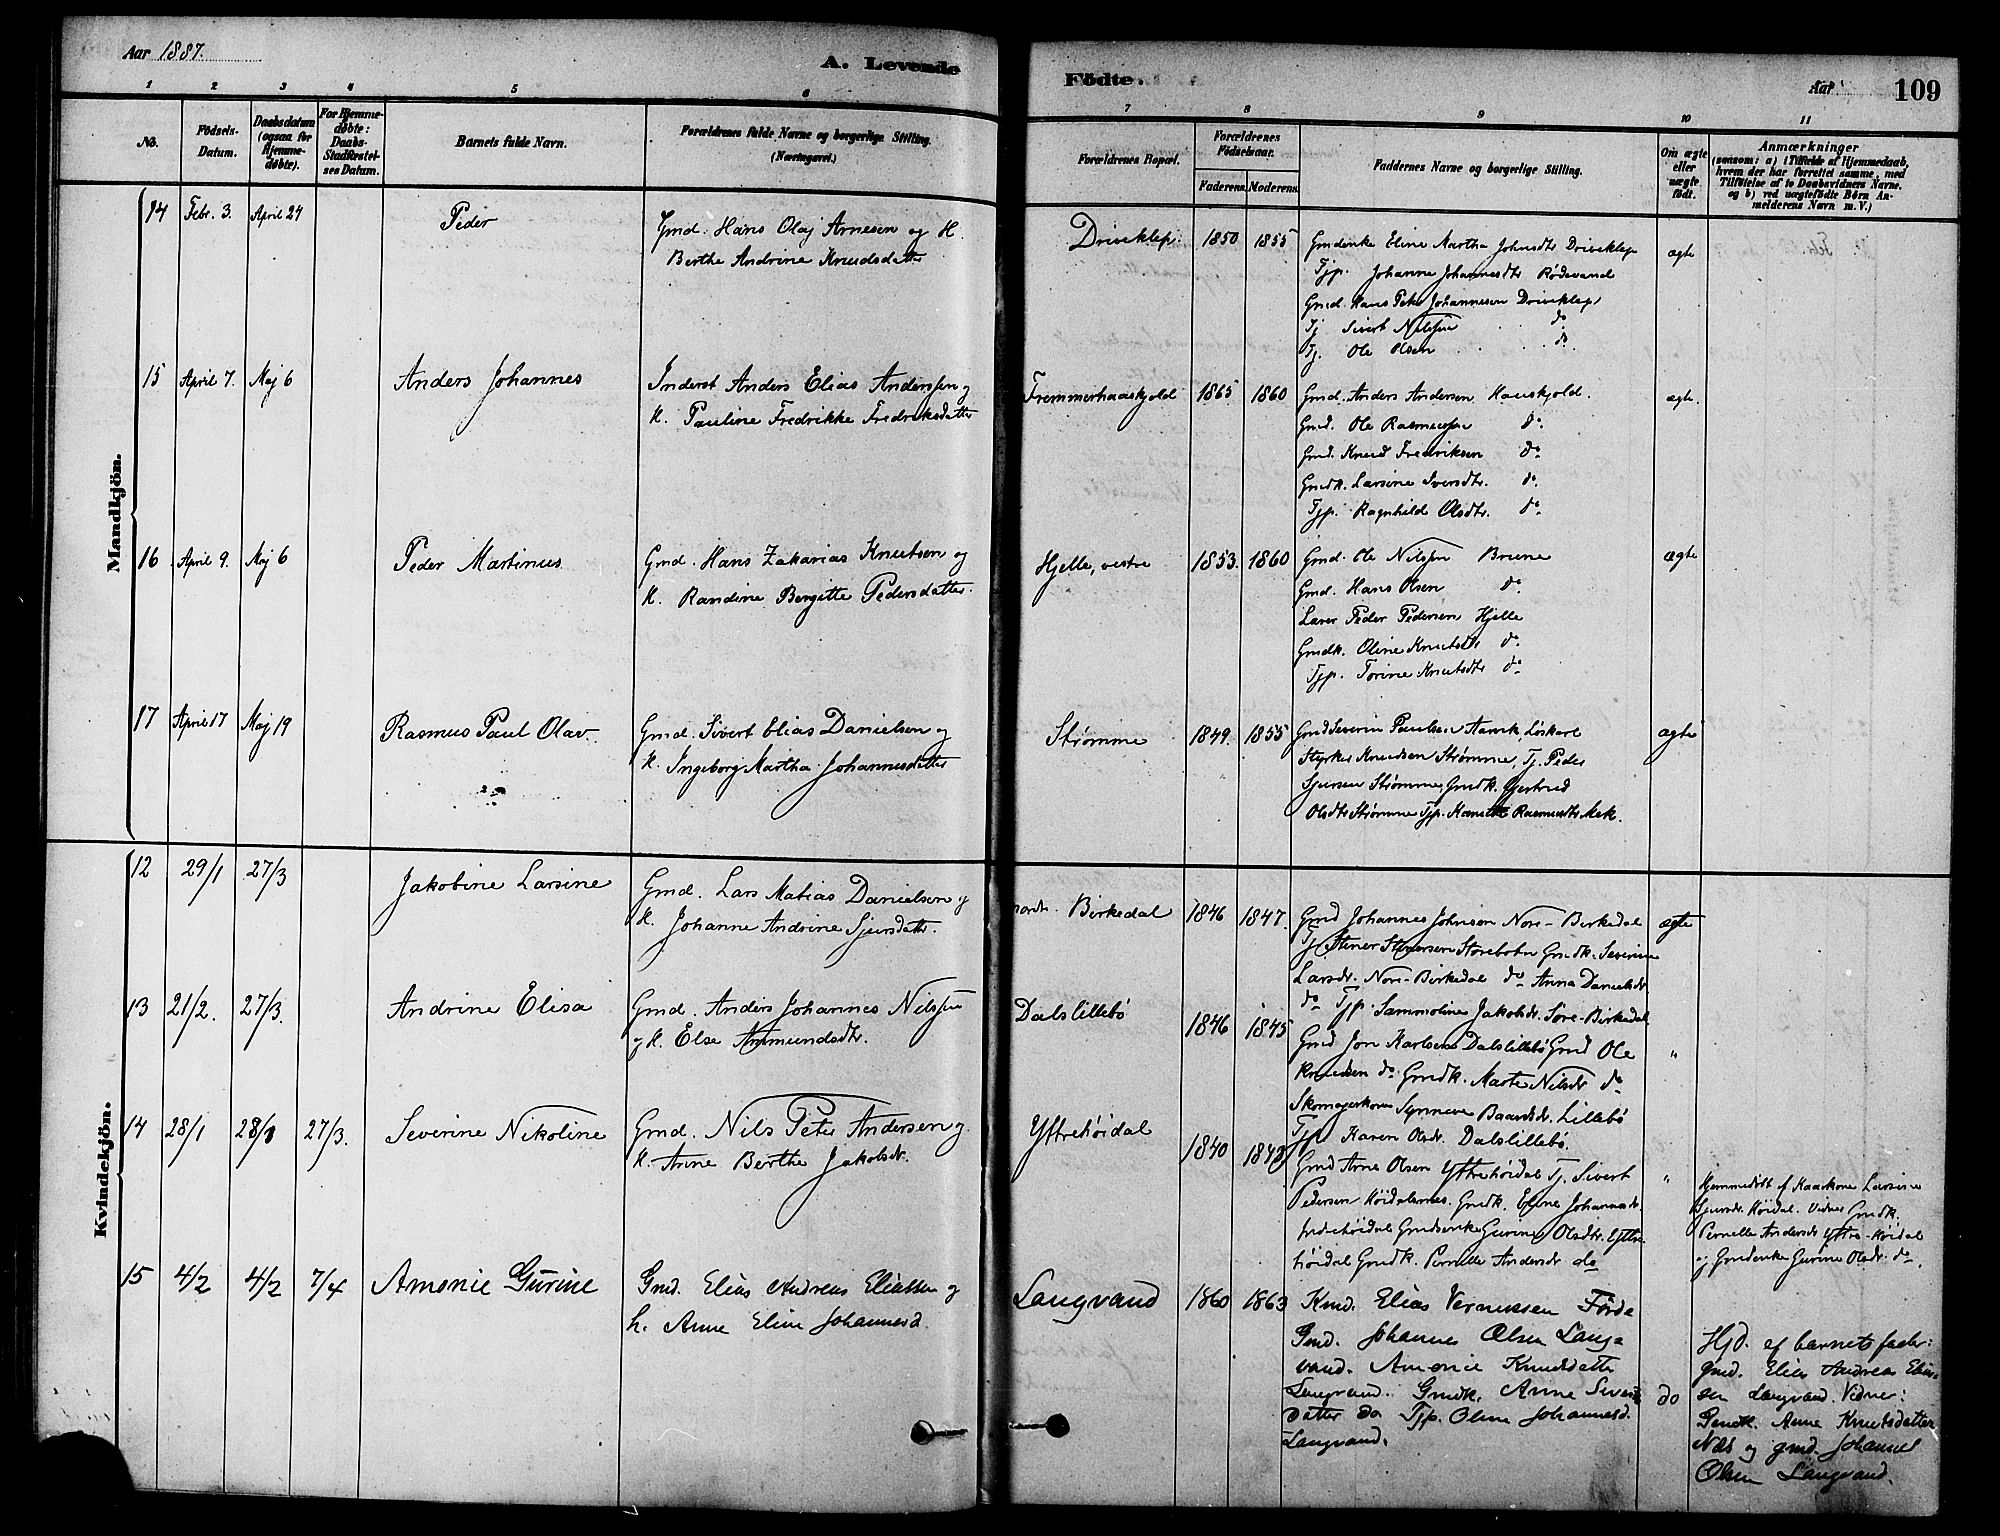 Aar 1887.
A. Levende
Födte.
Aar
109
1 2 3 4 5 6 7 8 9 10 11
No.
Födsels-Datum.
Daabsdatum (ogsaa for Hjemmedøbte).
For Hjemmedøbte: Daabs-Stadfæstelses Datum.
Barnets fulde Navn.
Forældrenes fulde Navne og borgerlige Stilling. (Næringsvei.)
Forældrenes Bopæl.
Forældrenes Födselsaar.
Faderens. Moderens.
Faddernes Navne og borgerlige Stilling.
Om ægte eller uægte födt.
Anmærkninger
(saasom: a) i Tilfælde af Hjemmedaab, hvem der har forrettet samme, med Tilföielse af to Daabsvidners Navne, og b) ved uægtefödte Börn Anmelderens Navn m. V.)
Mandkjön.
14 Febr. 3. April 24 Peder
Gmd. Hans Olaj Arnesen og H.
Berthe Andrine Knudsdatter
Driveklep. 1850 1855
Gmdenke Eline Martha Johnsdtr Driveklep
Tjp. Johanne Johannesdtr Rødevand
Gmd. Hans Peter Johannesen Driveklep
Tj Sivert Nilssen do
Tj. Ole Olsen do.
ægte
15 April 7. Maj 6 Anders Johannes
Inderst Anders Elias Anderssen og
K. Pauline Fredrikke Fredriksdatter
Fremmerhaaskjold 1865 1860
Gmd. Anders Andersen Hauskjold.
Gmd. Ole Rasmussen do.
Gmd. Knud Fredriksen do
Gmdk. Larsine Iversdtr. do.
Tjp. Ragnhilde Olsdtr. do
ægte.
16 April 9. Maj 6 Peder Martinus
Gmd. Hans Zakarias Knutsen og
K. Randine Bergitte Pedersdatter.
Hjelle, vestre 1853. 1860
Gmd. Ole Nilssen Brune
Gmd. Hans Olsen do.
Lærer Peder Pedersen Hjelle
Gmdk. Oline Knutsdtr do.
Tjp. Torine Knutsdtr do
ægte
17 April 17 Maj 19 Rasmus Paul Olav
Gmd. Sivert Elias Danielsen og
K. Ingeborg Martha Johannesdatter
Strømme 1849. 1855
Gmd Severin Paulsen Løskarl
Styrker Knudsen Strømme, Tj. Peder
Sjursen Strømme, Gmdk. Gjertrud
Olsdtr Strømme Tjp. Rasmusdtr
ægte
Kvindekjön.
12 29/1 27/3 Jakobine Larsine
Gmd. Lars Matias Danielsen og
K. Johanne Andrine Sjursdatter.
nordr. Birkedal 1846 1847.
Gmd Johannes Johnsen Nore-Birkedal
Tj Steiner Storebotn Gmdk. Severine
Larsdr. Nore-Birkedal do Anna Danielsdr
do Tjp. Sammoline Jakobsdr. Søre-Birkedal
ægte
13 21/2. 27/3. Andrine Elisa
Gmd. Anders Johannes Nilssen
og K. Else Amundsdtr.
Dalslillebø 1846 1845
Gmd Jon Karlsen Dalslillebø Gmd Ole
Knudsen do. Gmdk. Marte Nilsdr do
Skomagerkone Synneve Baardsdr. Lillebø
Tjp. Karen Olsdr. Dalslillebø.
"
14 28/1 28/1 27/3. Severine Nikoline
Gmd. Nils Peter Andersen og
K. Anne Berthe Jakobsdr.
Yttrehöidal 1840 1842
Gmd Arne Olsen Yttrehöidal Tj. Sivert
Pedersen Gmdk. Eline Johannesdr.
Indrehöidal Gmdenke Gurine Olsdtr. Yttre
höidal Gmdk. Pernelle Andersdr do
"
Hjemmedöbt af Kaarkone Larsine
Sjursdr. Höidal. Vidner Gmdk.
Pernelle Andersdr Yttre-Höidal
og Gmdenke Gurine Olsdr. do.
15 4/2 4/2 7/4 Amonie Gurine
Gmd. Elias Andreas Eliassen og
h. Anne Eline Johannesd.
Langvand 1860 1863
Kmd. Elias Vernussen Förde
Gmd. Johanne Olsen Lang-
vand. Amonie Knudsdatter
Langvand. Gmdk. Anne Siverts
datter do Tjp. Oline Johannesd.
Langvand.
do
Hjd. af barnets fader:
gmd. Elias Andreas Elias-
sen Langvand. Vidner:
Gmdk. Anne Knutsdatter
Næs og gmd. Johannes
Olsen Langvand.